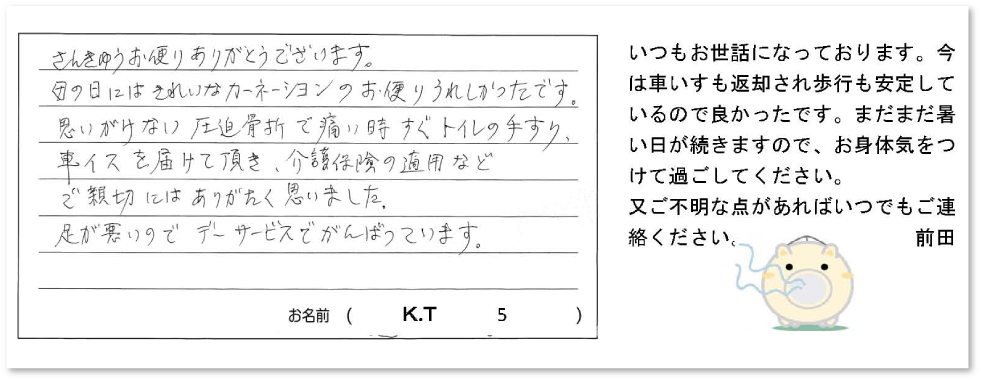 さんきゅうお便りありがとうございます。
母の日にはきれいなカーネーションのお便りうれしかったです。
思いがけない圧迫骨折で痛い時すぐトイレの手すり、
車イスを届けて頂き、介護保険の適用など
ご親切にはありがたく思いました。
足が悪いのでデーサービスでがんばっています。
お名前 ( K.T 5 )
いつもお世話になっております。今
は車いすも返却され歩行も安定して
いるので良かったです。まだまだ暑
い日が続きますので、お身体気をつ
けて過ごしてください。
又ご不明な点があればいつでもご連
絡ください。 前田